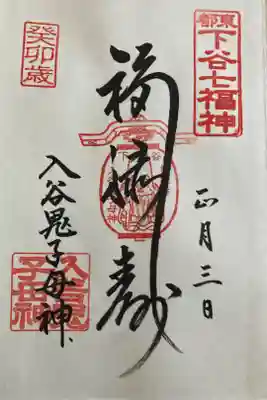 東都
下谷七福神
正月三日
福禄寿
癸卯歳
入谷鬼子母神
入谷鬼子母神